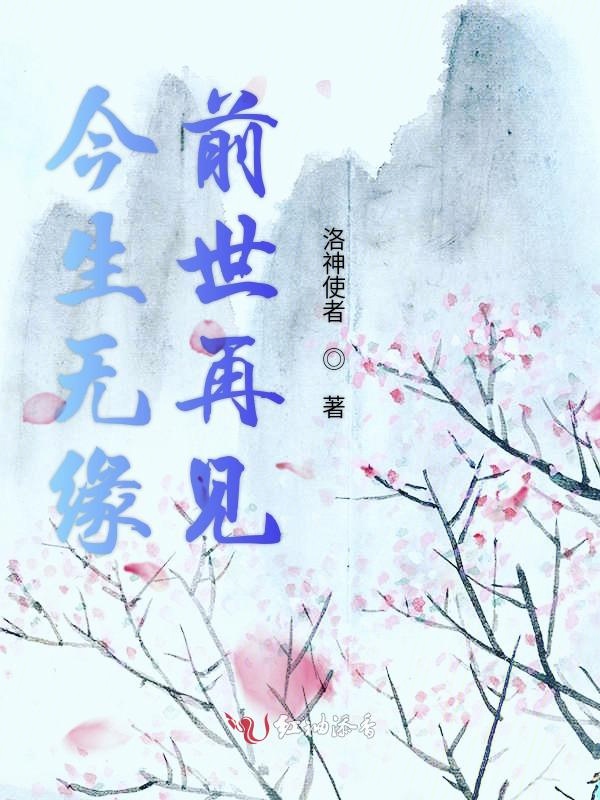 今生无缘
前世再见
洛神使者 ◎ 著
红袖添香